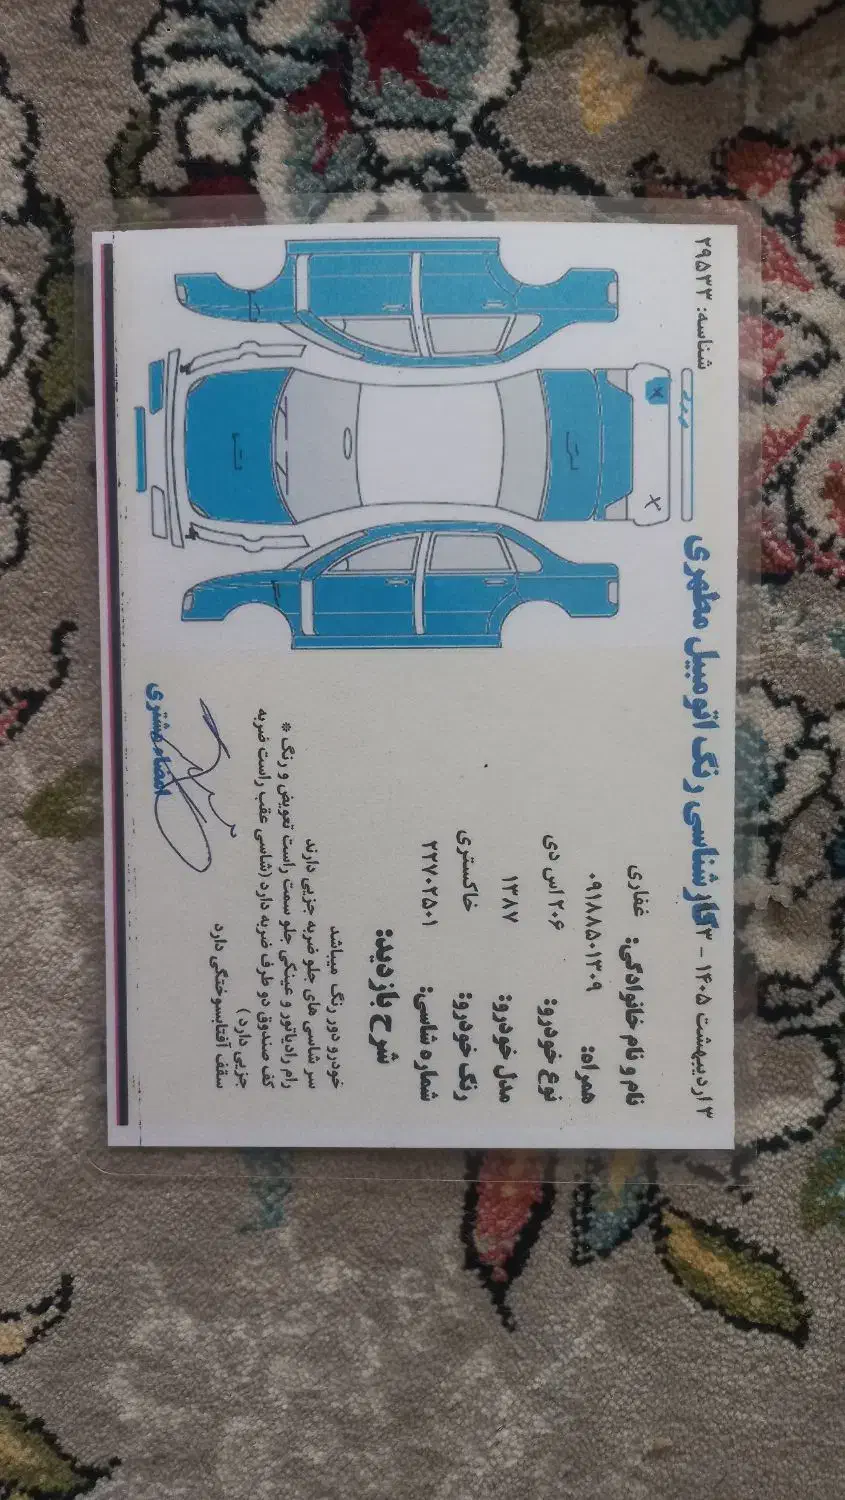 ۳ اردیبهشت ۱۴۰۵ - ۱۳
کارشناسی رنگ اتومبیل مطهری
شناسه: ۲۹۵۳۳
نام و نام خانوادگی: غفاری
همراه: ۰۹۱۸۸۵۰۱۳۰۹
نوع خودرو: ۲۰۶ اس دی
مدل خودرو: ۱۳۸۷
رنگ خودرو: خاکستری
شماره شاسی: ۲۲۷۰۲۵۰۱
شرح بازدید:
خودرو دور رنگ میباشد
سر شاسی های جلو ضربه جزیی دارند
رام رادیاتور و عینکی جلو سمت راست تعویض و رنگ *
کف صندوق دو طرف ضربه دارد (شاسی عقب راست ضربه
جزیی دارد)
سقف آفتابسوختگی دارد
امضاء مشتری